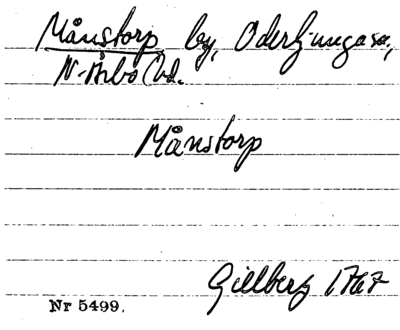 Månstorp by, Oderljunga sn,
N. Åsbo hd.
Månstorp
Gillberg 1767
Nr 5499.